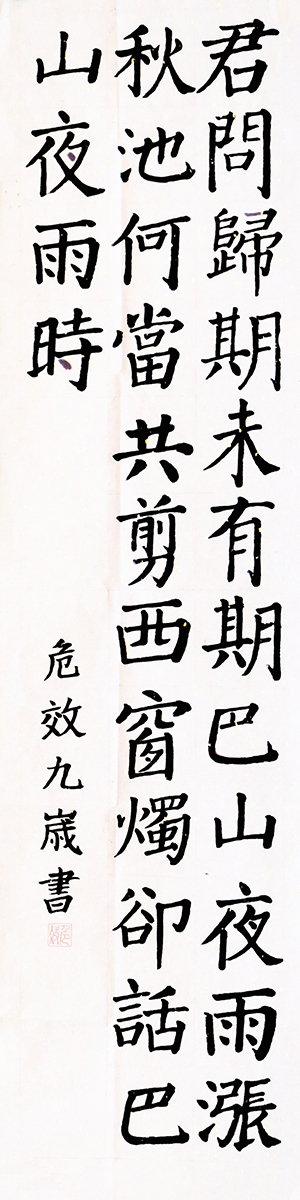 君問歸期未有期巴山夜雨漲
秋池何當共剪西窗燭卻話巴
山夜雨時
危效九歲書